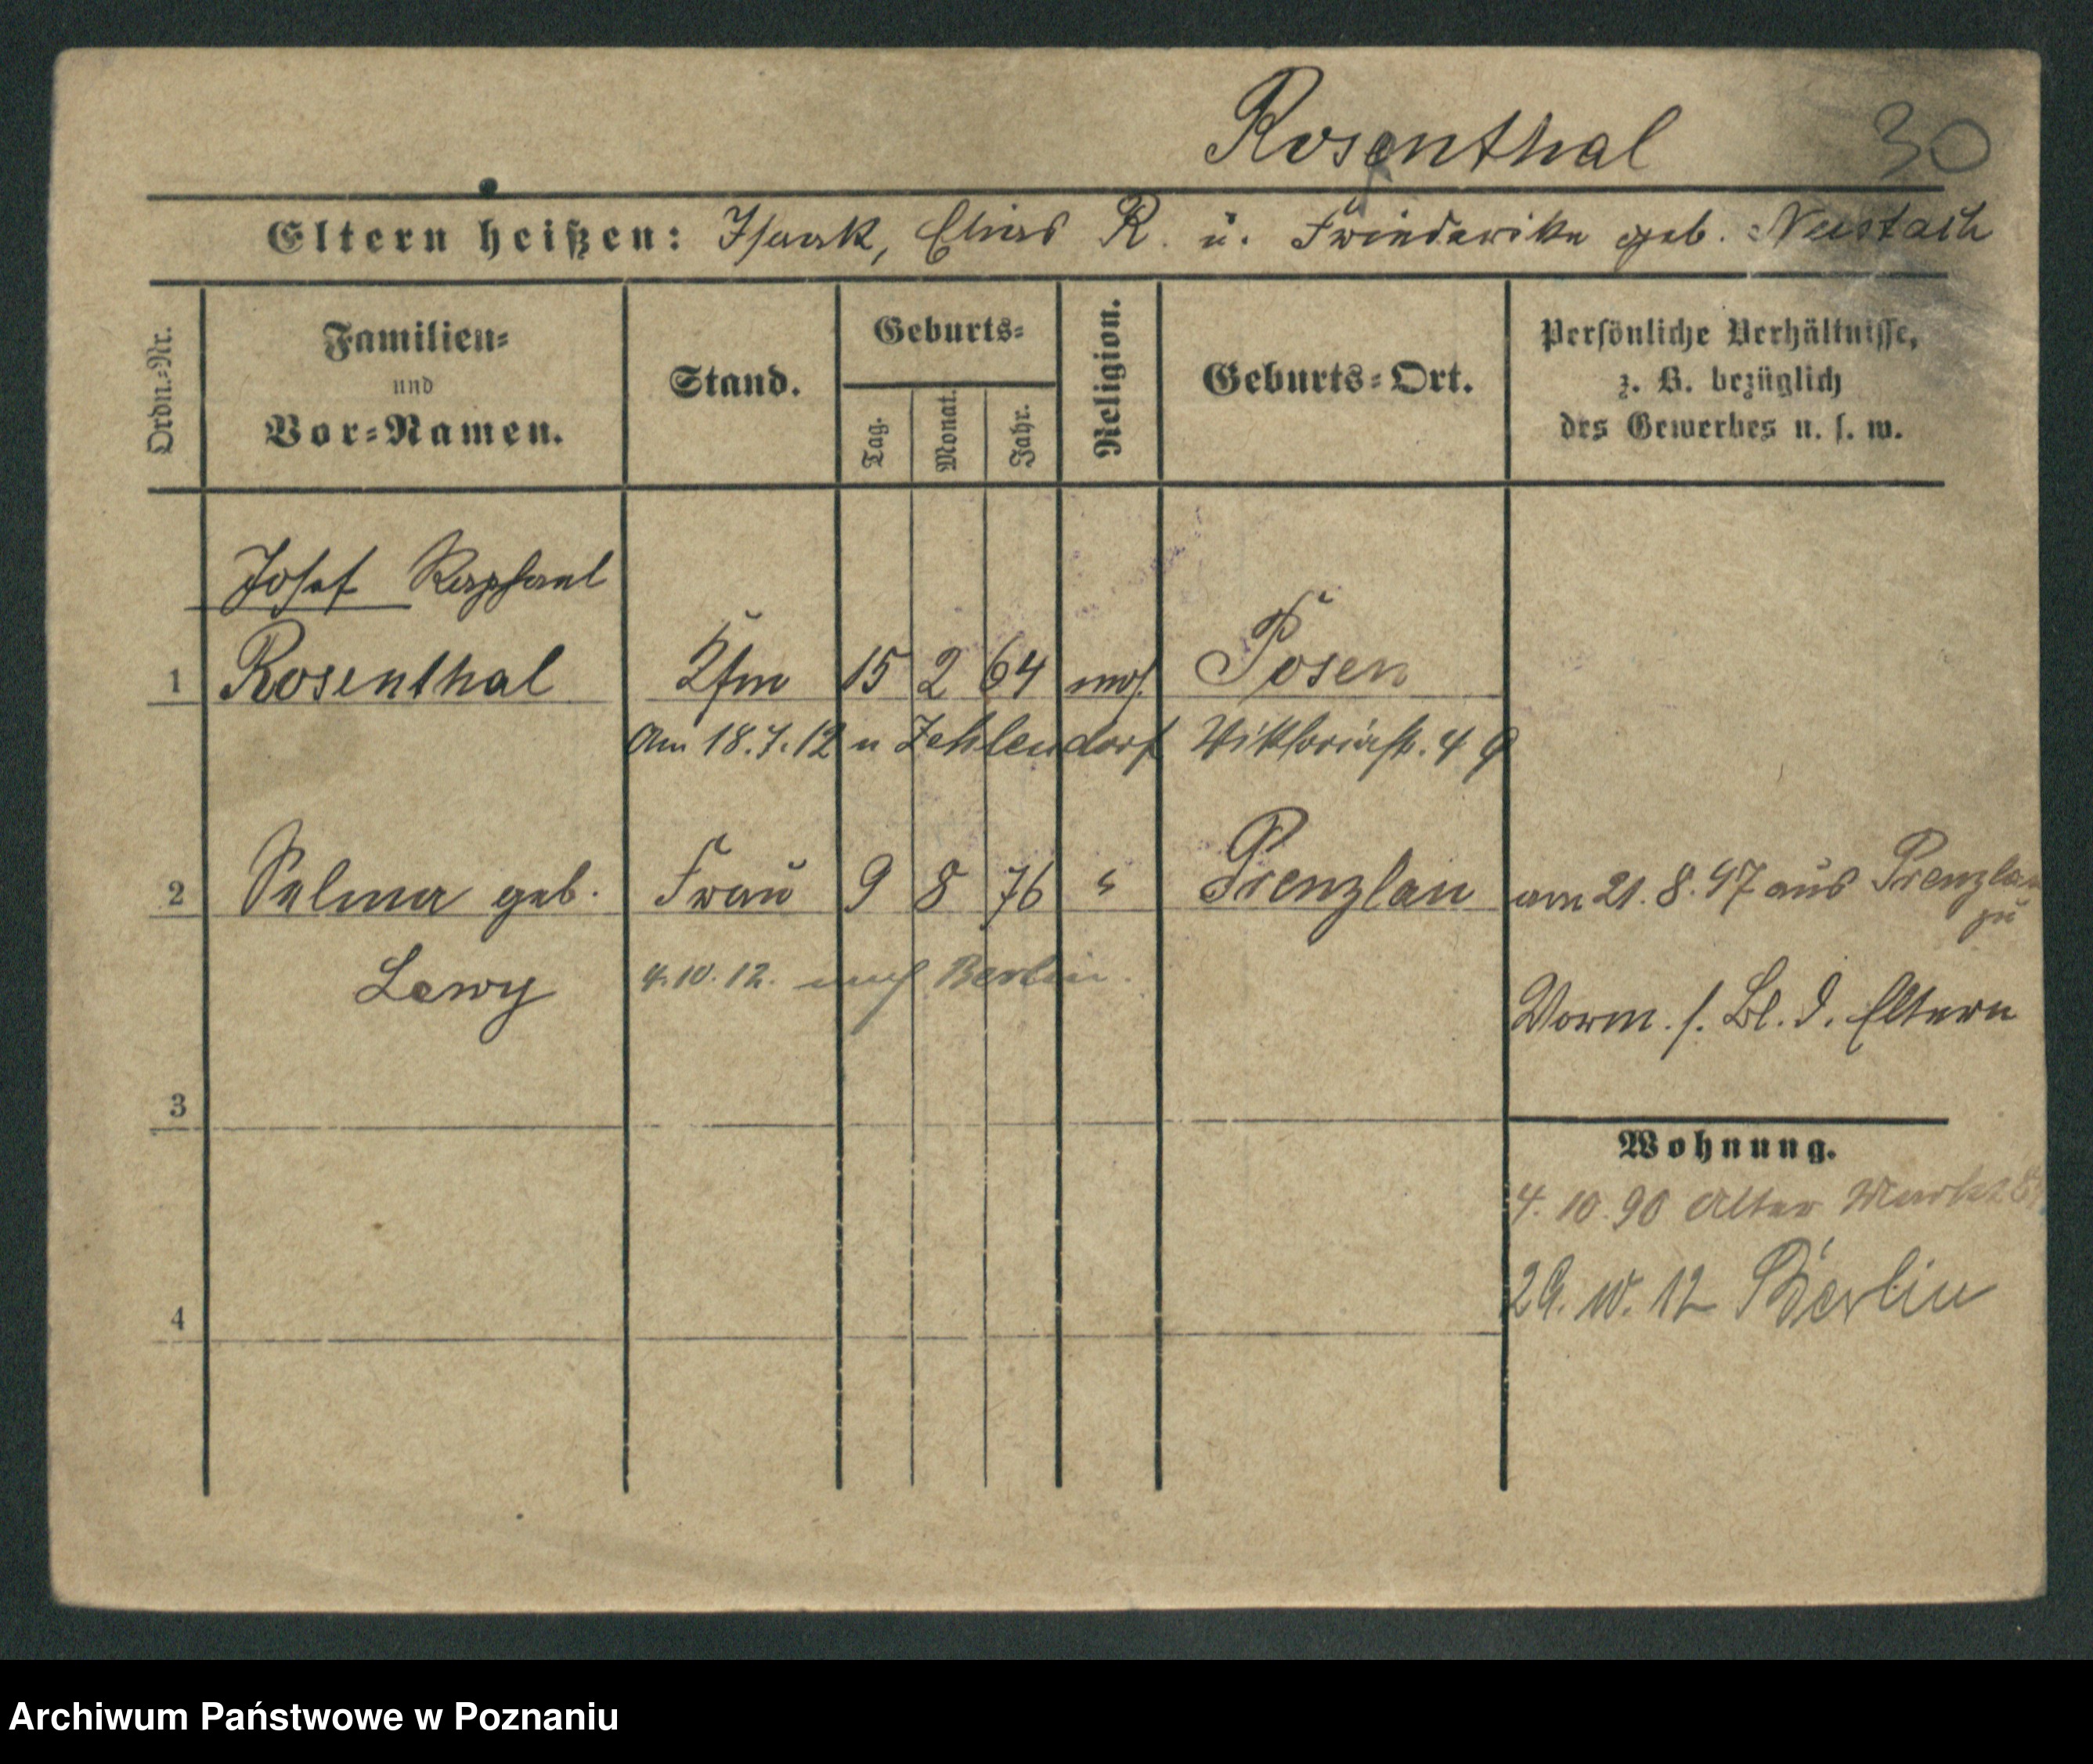 Rosenthal 30
Eltern heißen: Isaak, Elias R. u. Friederike geb. Neustadt
Ordn.-Nr.
Familien-
und
Vor-Namen.
Stand.
Geburts-
Tag.
Monat.
Jahr.
Religion.
Geburts-Ort.
Persönliche Verhältnisse,
z. B. bezüglich
des Gewerbes u. s. w.
Josef Raphael
1 Rosenthal Kfm 15 2 64 mos. Posen
Am 18.7.12 n Zehlendorf Viktoriastr. 4
2 Selma geb. Frau 9 8 76 " Prenzlau am 21.8.97 aus Prenzlau
zu
Lewy 4.10.12. nach Berlin.
Vorm. s. Bl. d. Eltern
3
Wohnung.
4.10.90 Alter Markt
29.10.12 Berlin
4
Archiwum Państwowe w Poznaniu